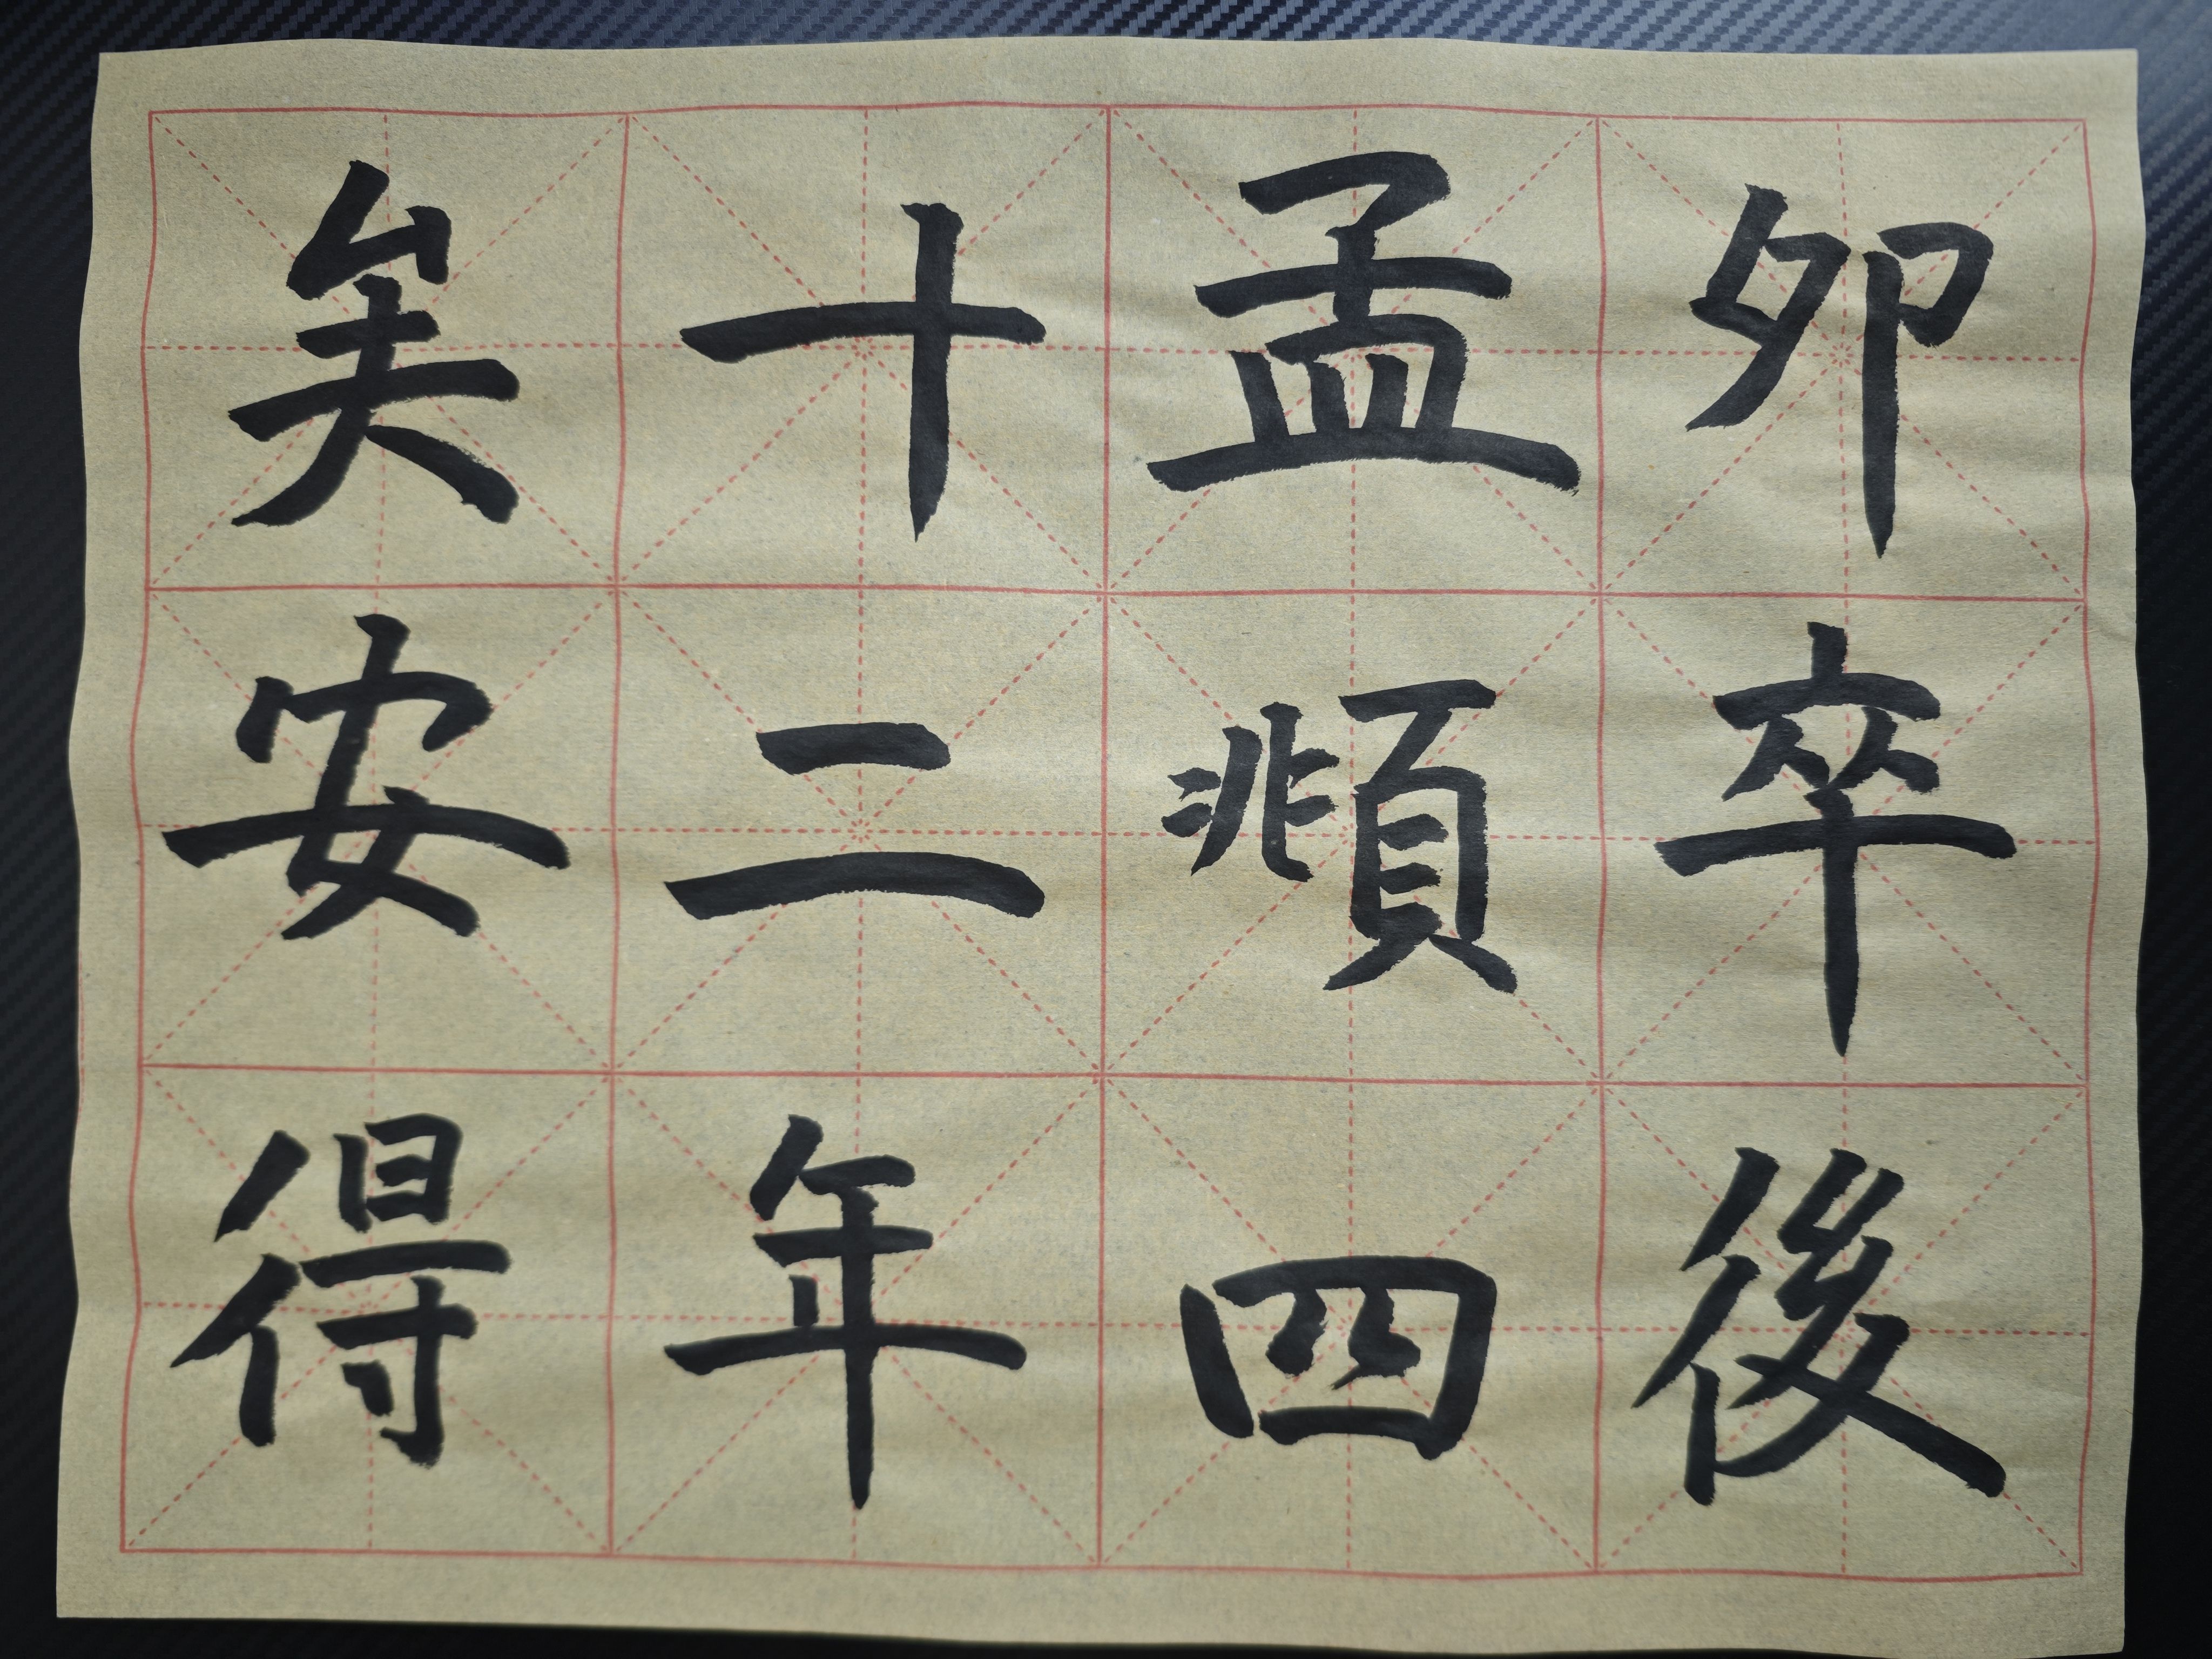 卯卒後
孟頫四
十二年
矣安得